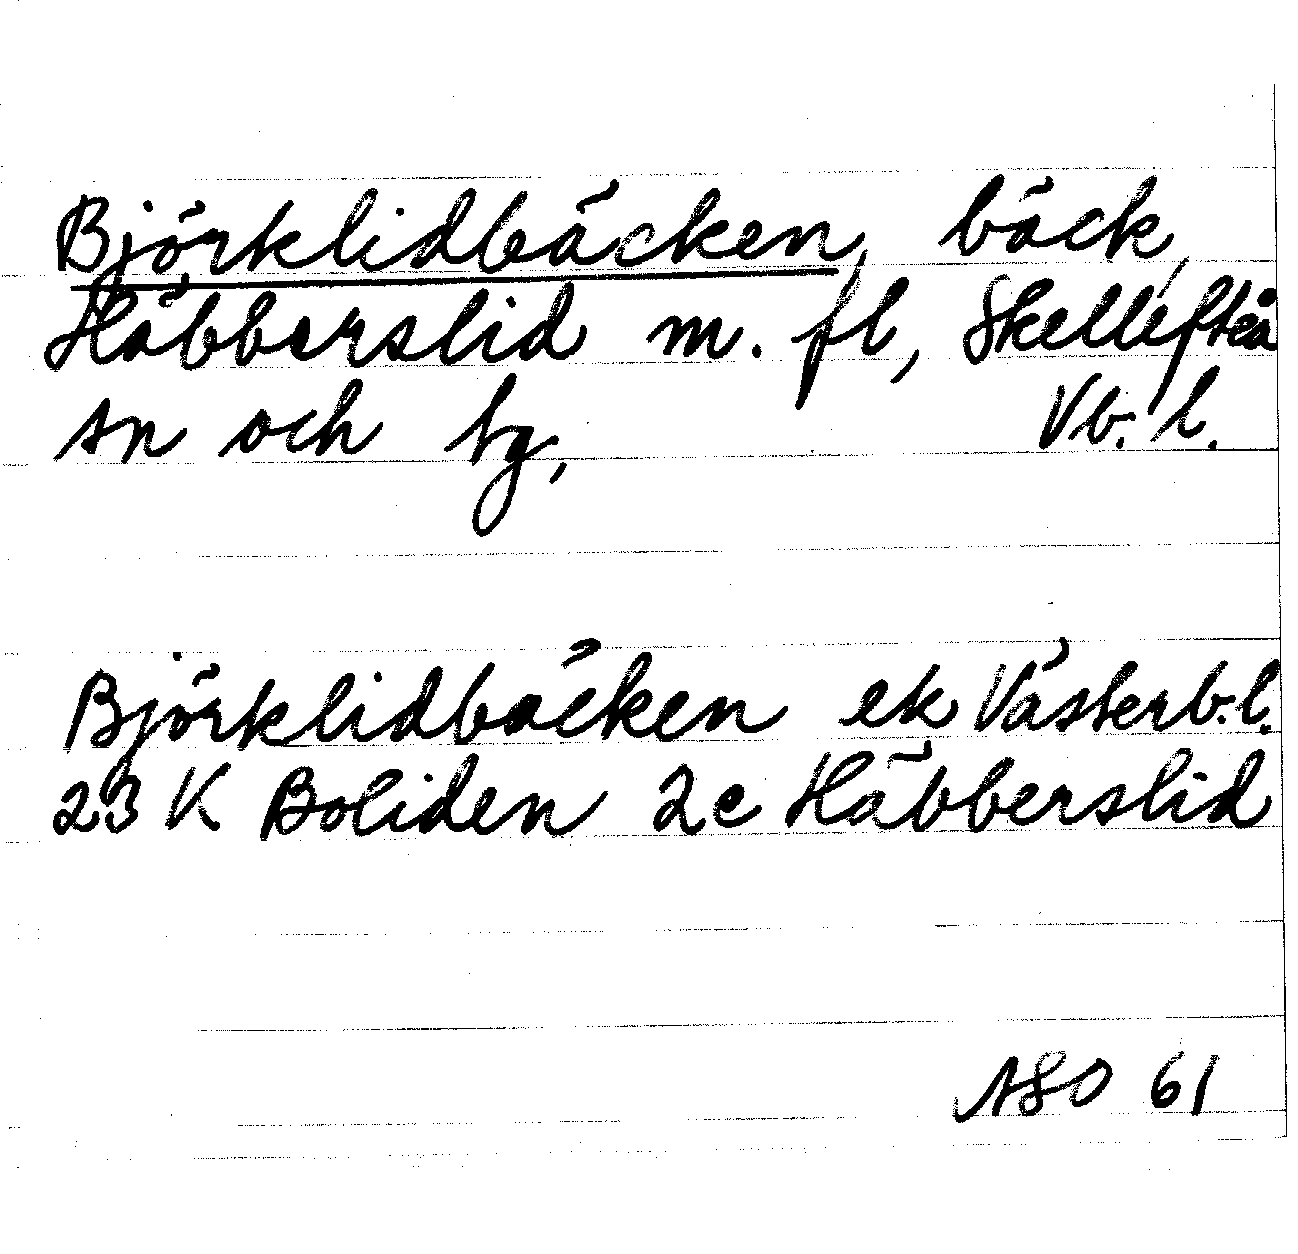 Björklidbäcken, bäck,
Häbberslid m. fl, Skellefteå
sn och tg, Vb. l.
Björklidbäcken ek Västerb.l.
23 K Boliden 2c Häbberslid
ASO 61